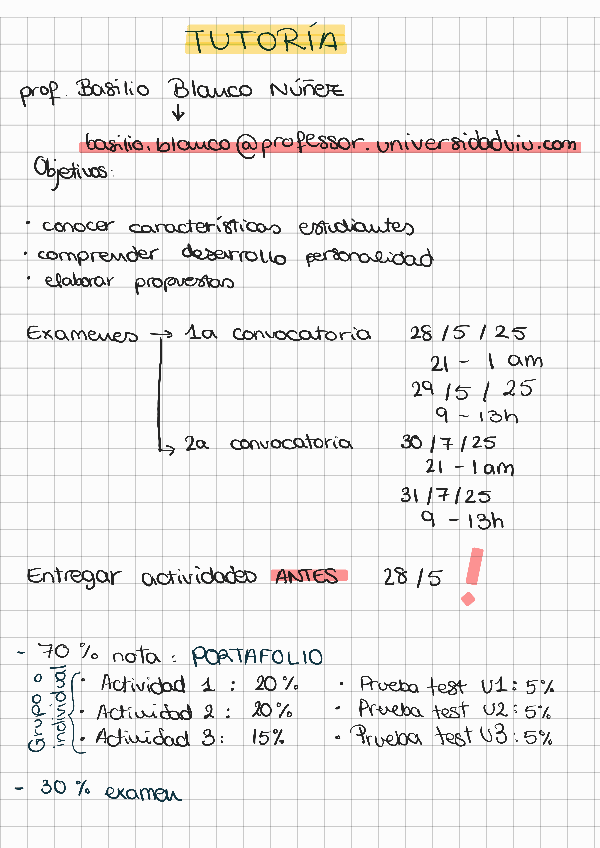 TUTORÍA
prof. Basilio Blanco Núñez
↓
basilio.blanco@professor.universidadviu.com
Objetivos:
· conocer características estudiantes
· comprender desarrollo personalidad
· elaborar propuestas
Examenes → 1a convocatoria 28/5/25
21 - 1 am
29/5/25
9 - 13h
↳ 2a convocatoria 30/7/25
21 - 1am
31/7/25
9 - 13h
Entregar actividades ANTES 28/5 !
- 70% nota: PORTAFOLIO
Grupo o individual
· Actividad 1: 20% · Prueba test U1: 5%
· Actividad 2: 20% · Prueba test U2: 5%
· Actividad 3: 15% · Prueba test U3: 5%
- 30% examen